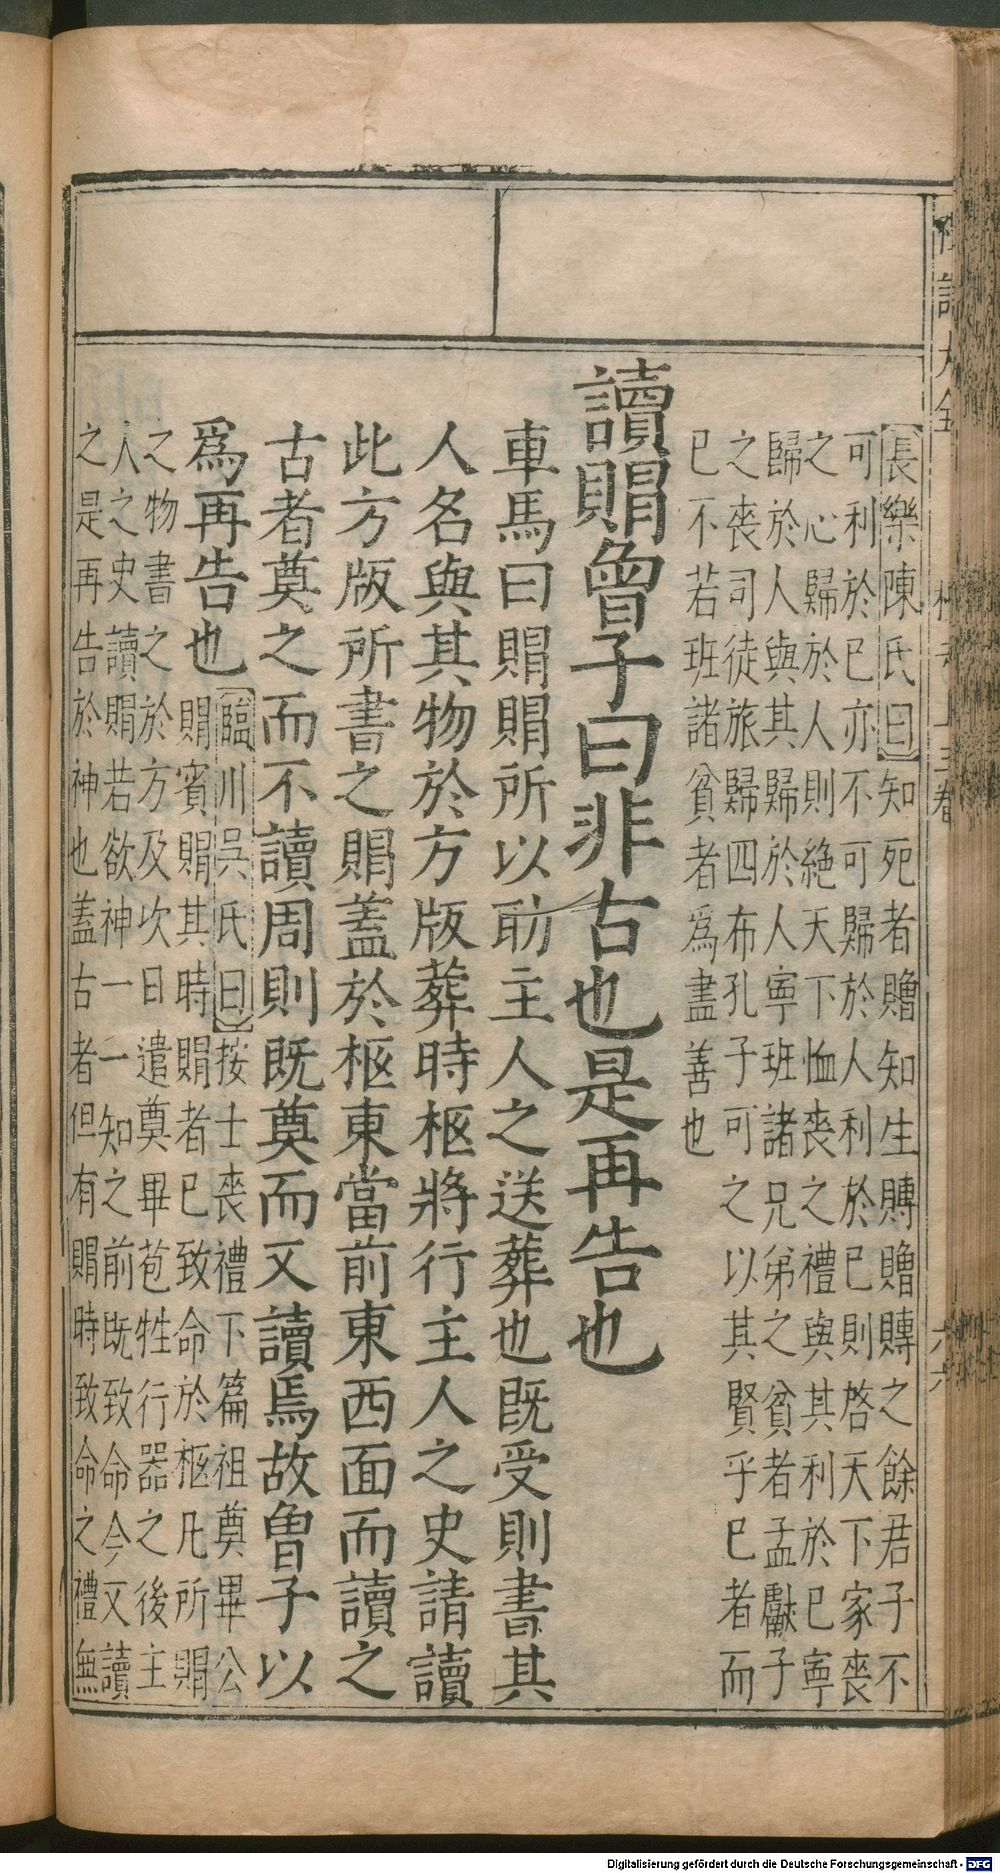 長樂陳氏曰知死者贈知生賻贈賻之餘君子不
可利於己亦不可歸於人利於己則啓天下家喪
之心歸於人則絶天下恤喪之禮與其利於己寧
歸於人與其歸於人寧班諸兄弟之貧者孟獻子
之喪司徒旅歸四布孔子可之以其賢乎已者而
已不若班諸貧者爲盡善也
讀賵曾子曰非古也是再告也
車馬曰賵賵所以助主人之送葬也既受則書其
人名與其物於方版葬時柩將行主人之史請讀
此方版所書之賵蓋於柩東當前東西面而讀之
古者奠之而不讀周則既奠而又讀焉故曾子以
爲再告也
臨川吳氏曰按士喪禮下篇祖奠畢公
賵賓賵其時賵者已致命於柩凡所賵
之物書之於方及次日遣奠畢苞牲行器之後主
人之史讀賵若欲神一一知之前既致命今又讀
之是再告於神也蓋古者但有賵時致命之禮無
大全
六六
Digitalisierung gefördert durch die Deutsche Forschungsgemeinschaft - DFG